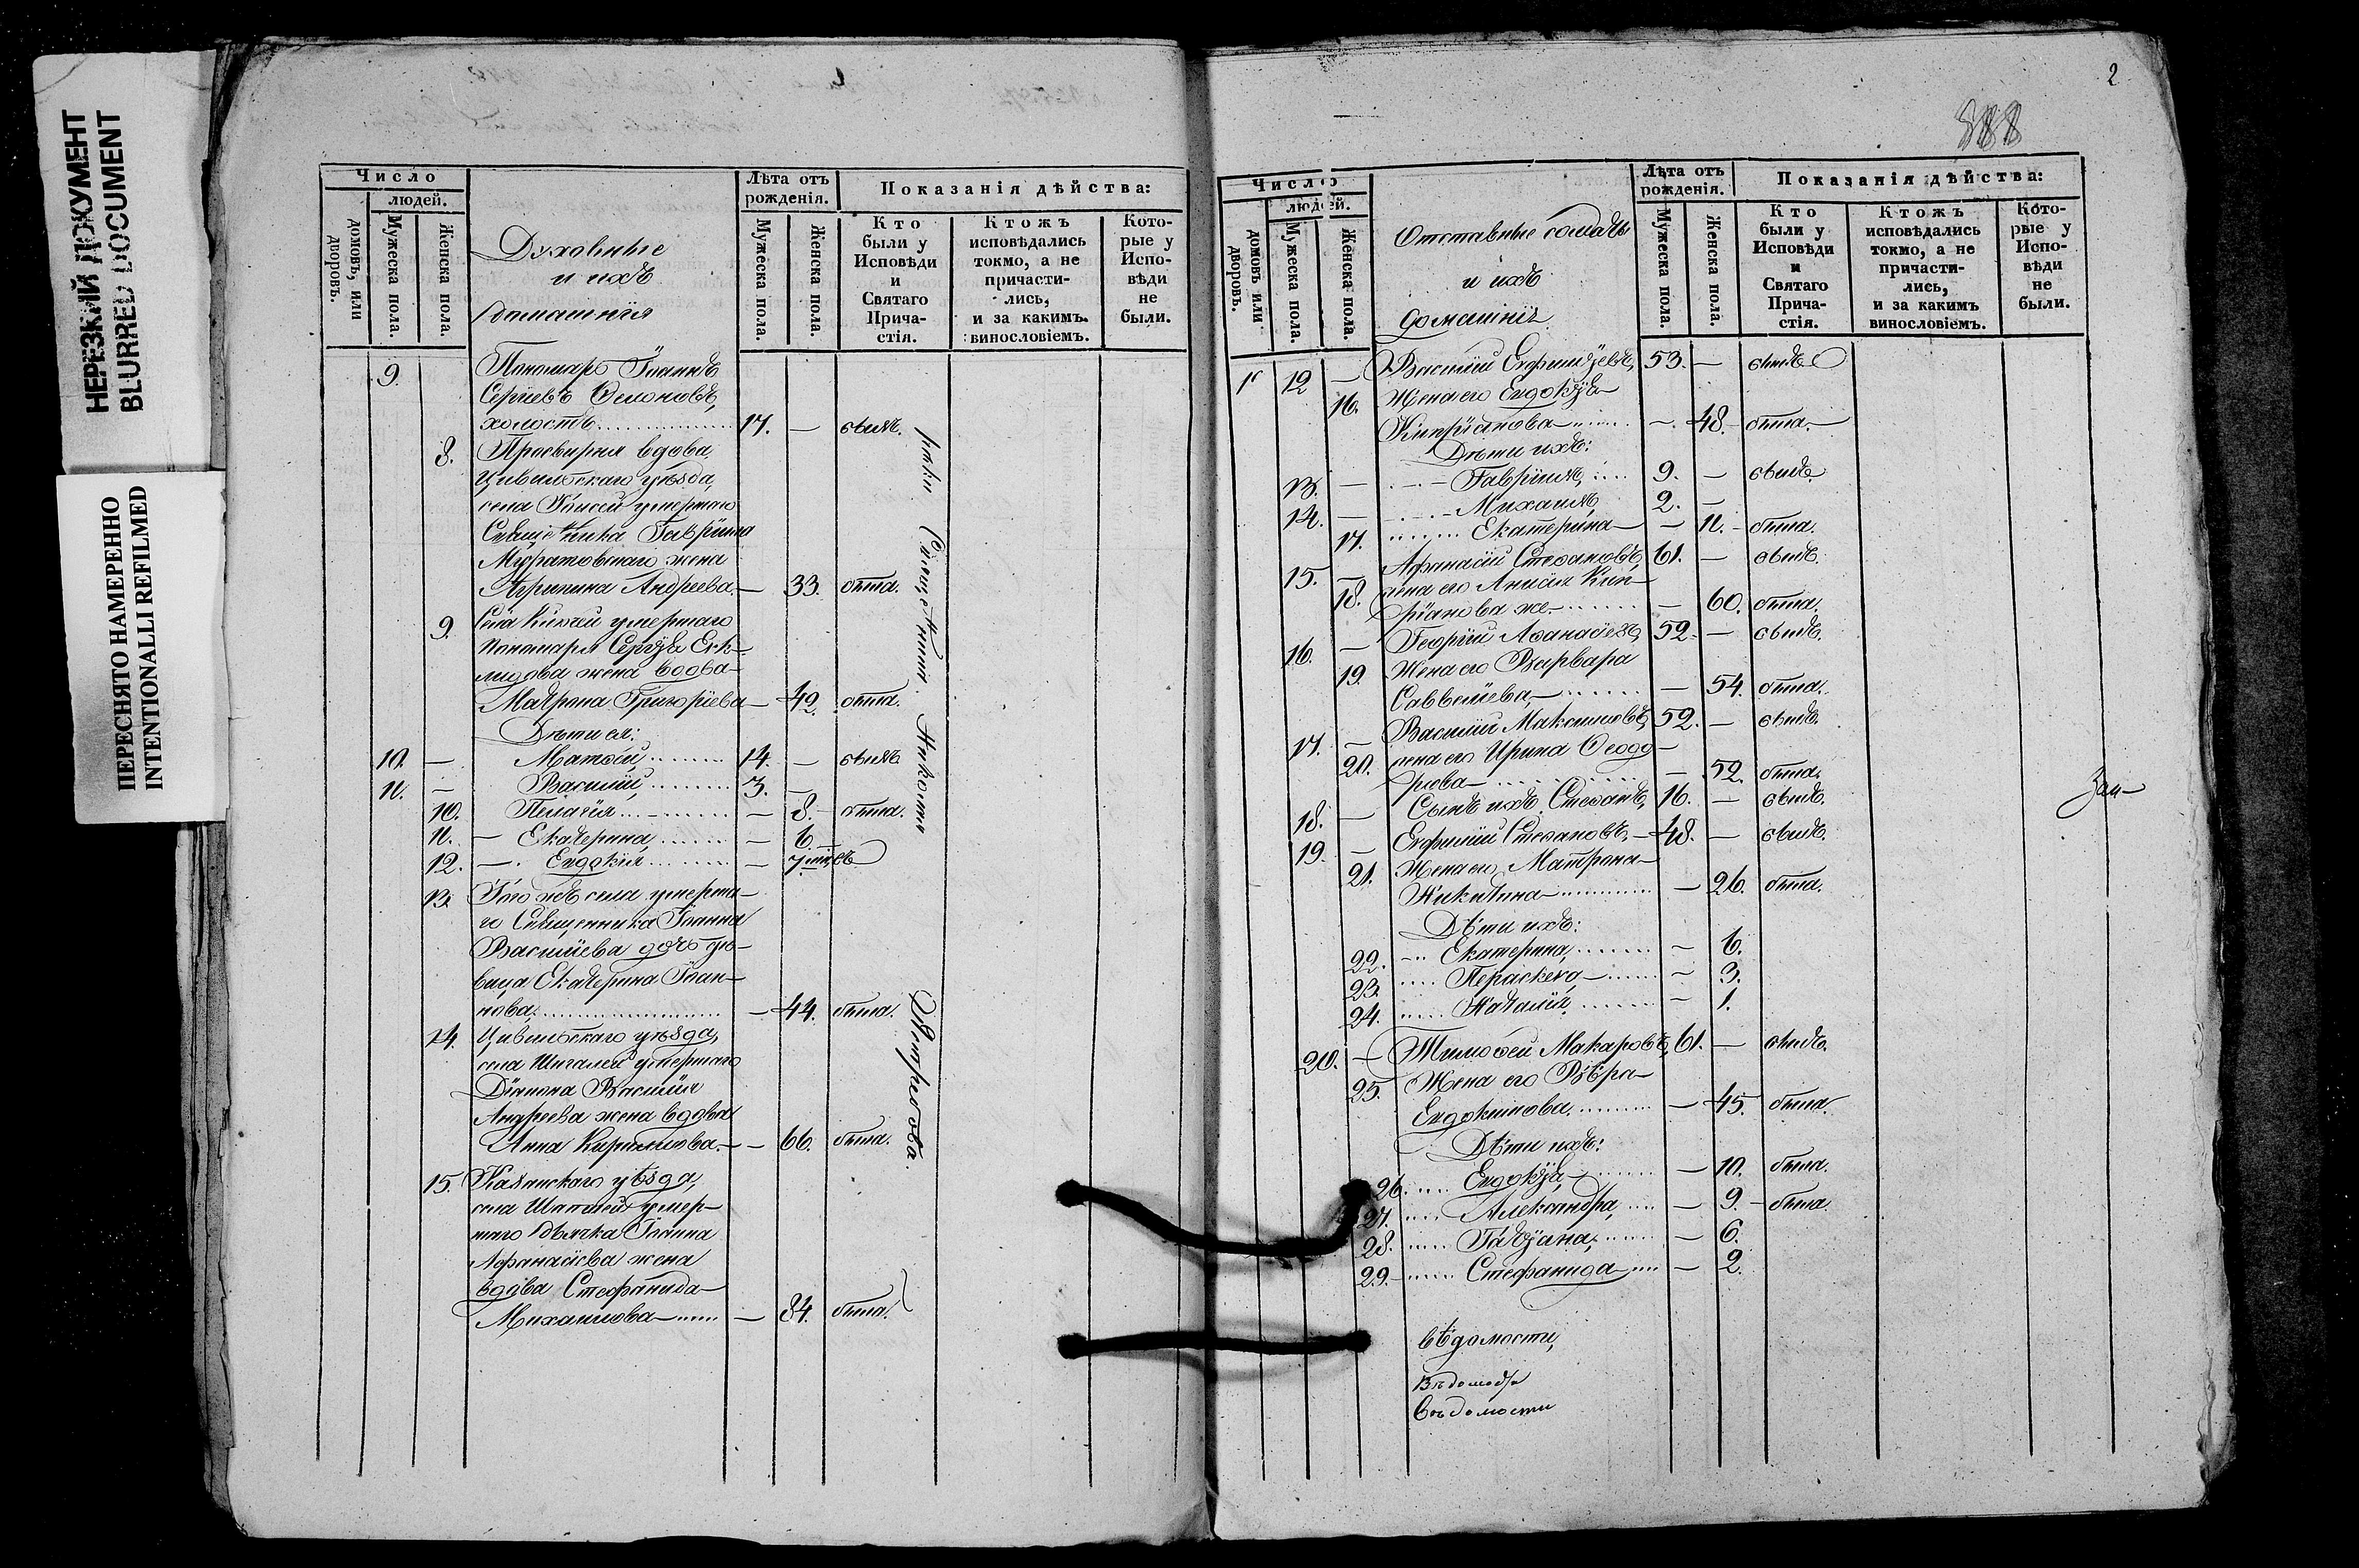 НЕРЕЗКИЙ ДОКУМЕНТ
BLURRED DOCUMENT
ПЕРЕСНЯТО НАМЕРЕННО
INTENTIONALLI REFILMED
Число
людей.
домовъ, или дворовъ.
Мужеска пола.
Женска пола.
Духовные
и ихъ
домашнія
Лѣта отъ рожденія.
Мужеска пола.
Женска пола.
Показанія дѣйства:
Кто были у Исповѣди и Святаго Причастія.
Ктожъ исповѣдались токмо, а не причастились, и за какимъ винословіемъ.
Которые у Исповѣди не были.
9. Пономарь Іоаннъ
Сергіевъ
холостъ 17. — былъ.
8. Просвирня вдова,
Цивильскаго уѣзда,
села умершаго
Священника Гавріила
Муратовскаго жена
Агрипина Андреева — 33. была.
9. Села умершаго
пономаря Сергѣя
жена вдова
Матрона Григоріева — 42. была.
Дѣти ея:
10. — Матѳей, 14. — былъ
11. — Василій, 3. —
10. Пелагія — 8. — была.
11. — Екатерина, — 6. —
12. — Евдокія — 7 мѣс.
13. Того жъ села умерша-
го Священника Іоанна
Василіева дочь дѣ-
вица Екатерина Іоан-
нова, — 44. была.
14. Цивильскаго уѣзда,
села Шигалей умершаго
Діакона Василія
Андреева жена вдова
Анна Кириллова. — 66. была.
15. Казанскаго уѣзда,
села умер-
шаго дьячка Іоанна
Афанасіева жена
вдова Стефанида
Михаилова — 84. была.
Священникъ Никоноръ
2
888
Число
людей.
домовъ или дворовъ.
Мужеска пола.
Женска пола.
Отставные солдаты
и ихъ
домашніе
Лѣта отъ рожденія.
Мужеска пола.
Женска пола.
Показанія дѣйства:
Кто были у Исповѣди и Святаго Причастія.
Ктожъ исповѣдались токмо, а не причастились, и за какимъ винословіемъ.
Которые у Исповѣди не были.
12 — Василій Евфиміевъ, 53. — былъ
16. Жена его Евдокія
Кипріанова — 48. — была.
Дѣти ихъ:
13. — Гавріилъ, 9. — былъ.
14. — Михаилъ, 2. —
17. Екатерина — 11. — была.
15. — Афанасій Стефановъ, 61. — былъ.
18. жена его Анисія Кип-
ріанова же — 60. была.
16. — Георгій Аѳанасіевъ, 52. — былъ.
19. Жена его Варвара
Савельева, — 54. была.
17. — Василій Максимовъ, 52. — былъ.
20. жена его Ирина Ѳеодо-
рова — 52. была.
18. — Сынъ ихъ Стефанъ, 16. — былъ.
19. — Евфимій Стефановъ, 48. — былъ.
21. Жена его Матрона
Никитина — 26. была.
Дѣти ихъ:
22. Екатерина, — 6.
23. Параскева, — 3.
24. Наталія, — 1.
20. — Тимоѳей Макаровъ, 61. — былъ.
25. Жена его Вѣра
Евдокимова, — 45. была.
Дѣти ихъ:
26. Евдокія, — 10. была.
27. Александра, — 9. — была
28. Татіана, — 6.
29. Стефанида — 2.
вѣдомости,
вѣдомости
Зан-